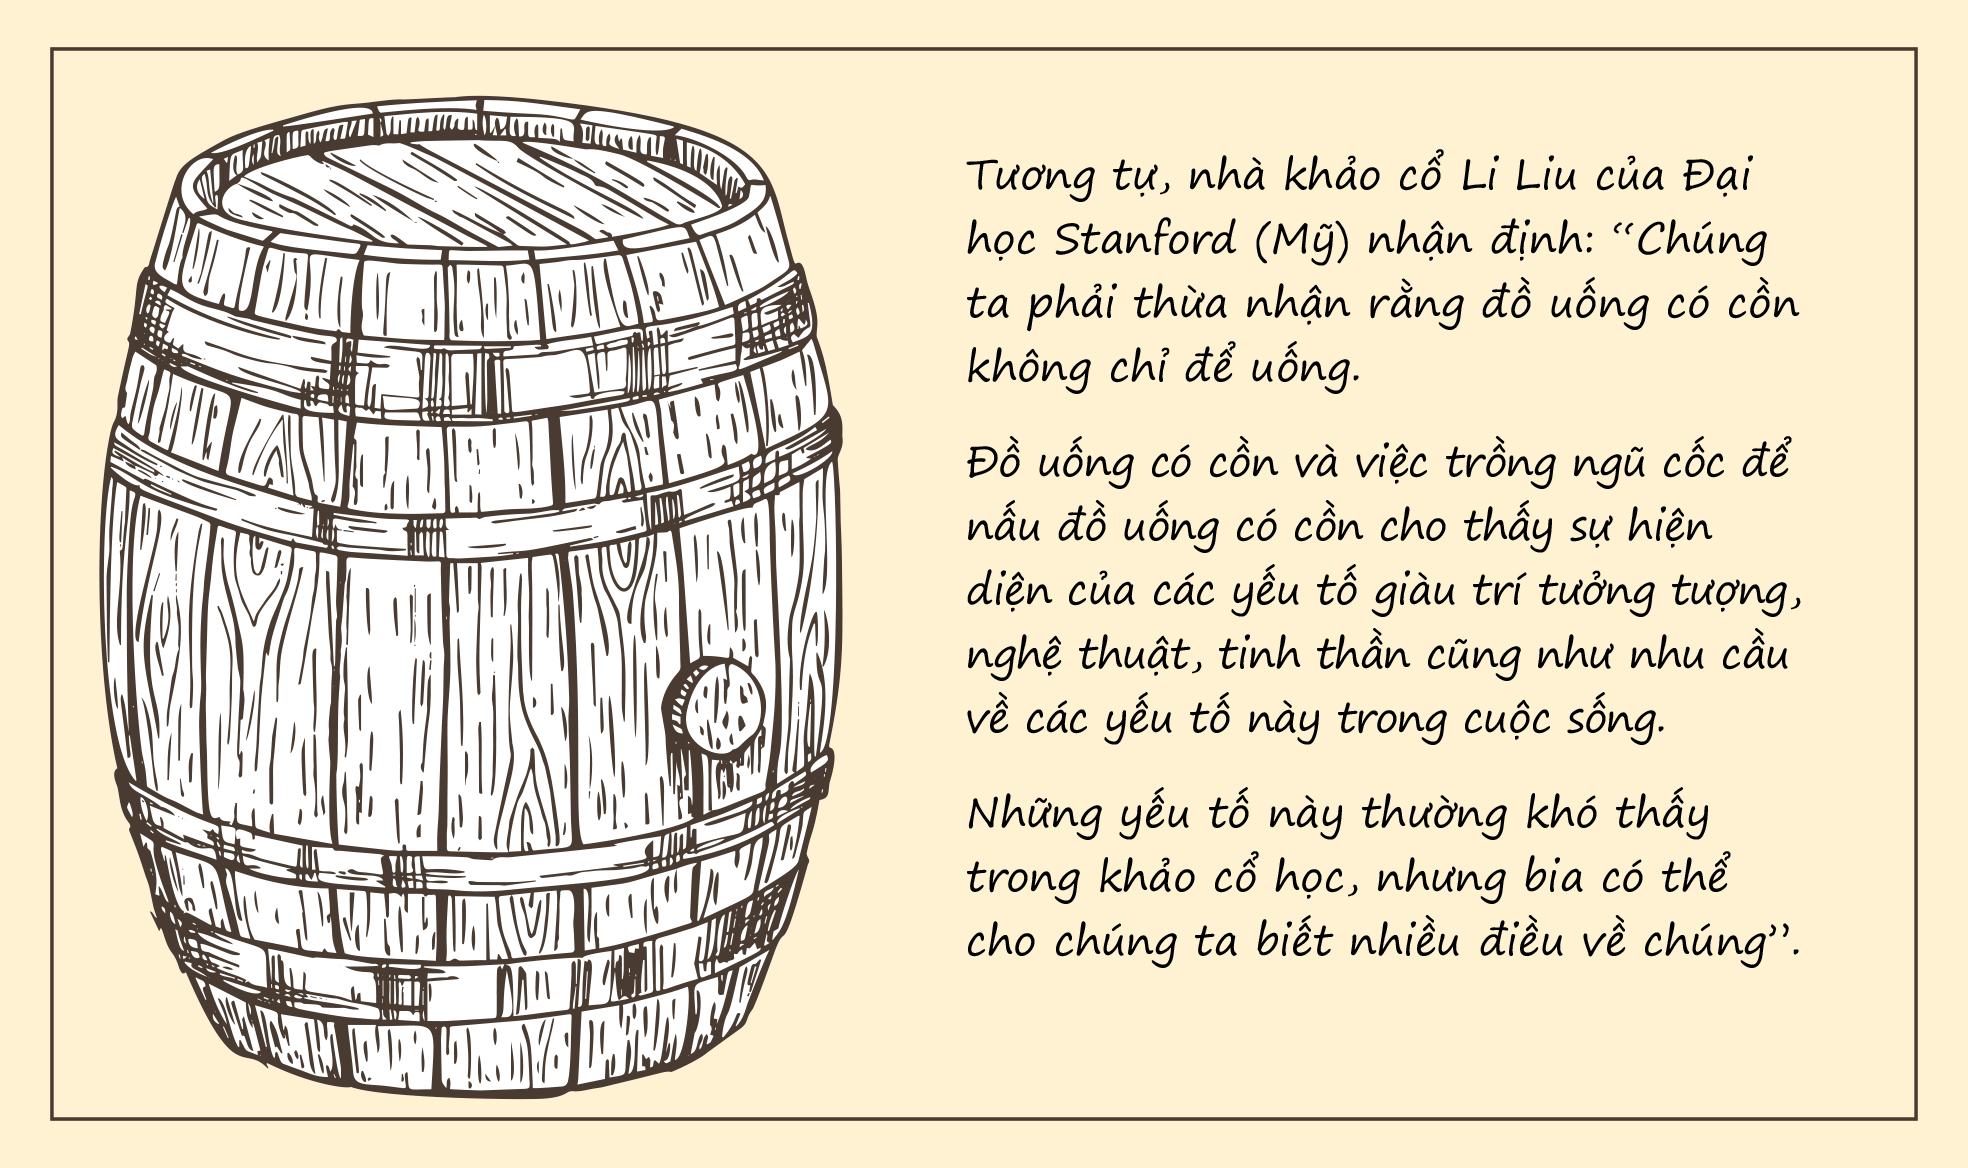 Tương tự, nhà khảo cổ Li Liu của Đại
học Stanford (Mỹ) nhận định: “Chúng
ta phải thừa nhận rằng đồ uống có cồn
không chỉ để uống.
Đồ uống có cồn và việc trồng ngũ cốc để
nấu đồ uống có cồn cho thấy sự hiện
diện của các yếu tố giàu trí tưởng tượng,
nghệ thuật, tinh thần cũng như nhu cầu
về các yếu tố này trong cuộc sống.
Những yếu tố này thường khó thấy
trong khảo cổ học, nhưng bia có thể
cho chúng ta biết nhiều điều về chúng”.